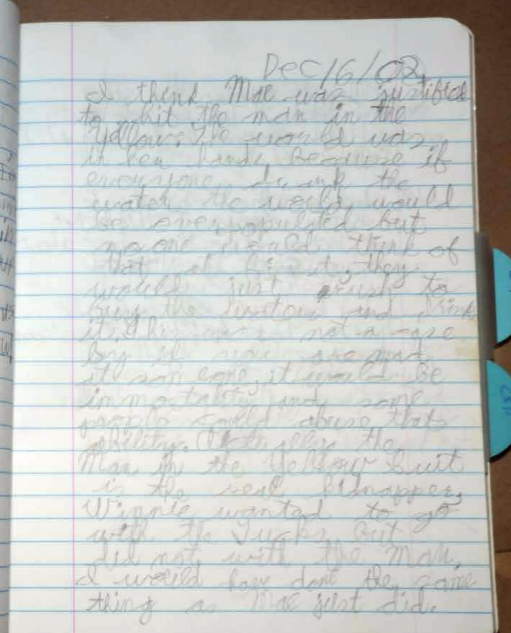 Dec/6/02
I think Mae was justified
to hit the man in the
Yellow. The world was
in her hands because if
everyone drank the
water the world would
be overpopulated but
no one would think of
that at first, they
would just rush to
buy the water and drink
it. This was not a case
you are mad
at someone, it would be
immortality and some
people could abuse that
ability. the
Man in the Yellow Suit
is the real kidnapper,
Winnie wanted to go
with the Tucks but
did not with the man.
I would have dont the same
thing as Mae just did.